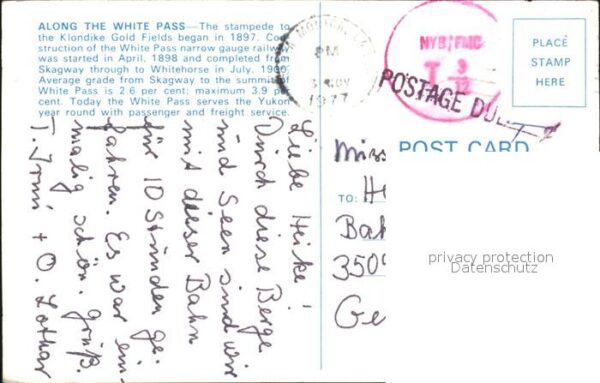 ALONG THE WHITE PASS—The stampede to
the Klondike Gold Fields began in 1897. Con-
struction of the White Pass narrow gauge railway
was started in April, 1898 and completed from
Skagway through to Whitehorse in July, 1900.
Average grade from Skagway to the summit of
White Pass is 2.6 per cent: maximum 3.9 per
cent. Today the White Pass serves the Yukon
year round with passenger and freight service.
Liebe Heike!
Durch diese Berge
und Seen sind wir
mit dieser Bahn
für 10 Stunden ge-
fahren. Es war ein-
malig schön. Grüß.
T. Irmi + O. Lothar
PM
NOV
1977
NYB/FMC
T 3
12
POSTAGE DUE
PLACE
STAMP
HERE
POST CARD
Miss
TO: H
Bah
350
Ge
privacy protection
Datenschutz